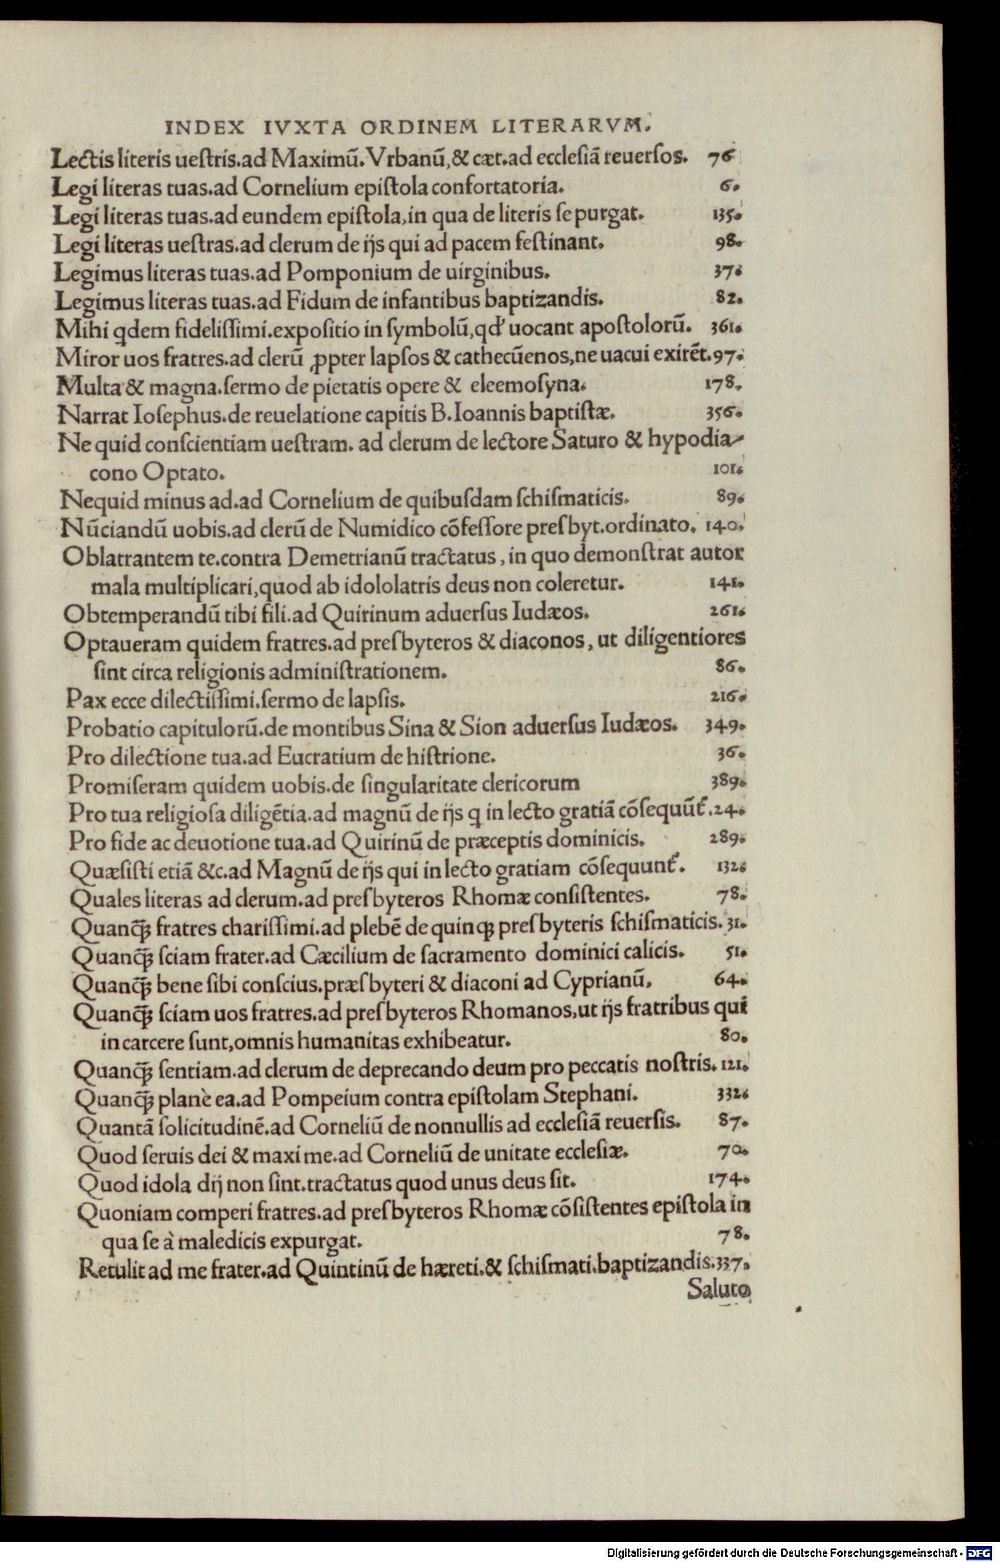 INDEX IVXTA ORDINEM LITERARVM.
Lectis literis uestris.ad Maximū.Vrbanū,& cæt.ad ecclesiā reuersos. 76
Legi literas tuas.ad Cornelium epistola confortatoria. 6.
Legi literas tuas.ad eundem epistola,in qua de literis se purgat. 135.
Legi literas uestras.ad clerum de ijs qui ad pacem festinant. 98.
Legimus literas tuas.ad Pomponium de uirginibus. 37.
Legimus literas tuas.ad Fidum de infantibus baptizandis. 82.
Mihi qdem fidelissimi.expositio in symbolū,qd' uocant apostolorū. 361.
Miror uos fratres.ad clerū ꝓpter lapsos & cathecūenos,ne uacui exirēt.97.
Multa & magna.sermo de pietatis opere & eleemosyna. 178.
Narrat Iosephus.de reuelatione capitis B.Ioannis baptistæ. 356.
Ne quid conscientiam uestram. ad clerum de lectore Saturo & hypodia-
cono Optato. 101.
Nequid minus ad.ad Cornelium de quibusdam schismaticis. 89.
Nūciandū uobis.ad clerū de Numidico cōfessore presbyt.ordinato. 140.
Oblatrantem te.contra Demetrianū tractatus, in quo demonstrat autor
mala multiplicari,quod ab idololatris deus non coleretur. 141.
Obtemperandū tibi fili.ad Quirinum aduersus Iudæos. 261.
Optaueram quidem fratres.ad presbyteros & diaconos, ut diligentiores
sint circa religionis administrationem. 86.
Pax ecce dilectissimi.sermo de lapsis. 216.
Probatio capitulorū.de montibus Sina & Sion aduersus Iudæos. 349.
Pro dilectione tua.ad Eucratium de histrione. 36.
Promiseram quidem uobis.de singularitate clericorum 389.
Pro tua religiosa diligētia.ad magnū de ijs q in lecto gratiā cōsequūt̃.24.
Pro fide ac deuotione tua.ad Quirinū de præceptis dominicis. 289.
Quæsisti etiā &c.ad Magnū de ijs qui in lecto gratiam cōsequunt̃. 132.
Quales literas ad clerum.ad presbyteros Rhomæ consistentes. 78.
Quanꝗ̃ fratres charissimi.ad plebē de quinqꝫ presbyteris schismaticis.31.
Quanꝗ̃ sciam frater.ad Cæcilium de sacramento dominici calicis. 51.
Quanꝗ̃ bene sibi conscius.præsbyteri & diaconi ad Cyprianū. 64.
Quanꝗ̃ sciam uos fratres.ad presbyteros Rhomanos,ut ijs fratribus qui
in carcere sunt,omnis humanitas exhibeatur. 80.
Quanꝗ̃ sentiam.ad clerum de deprecando deum pro peccatis nostris. 121.
Quanꝗ̃ planè ea.ad Pompeium contra epistolam Stephani. 332.
Quantā solicitudinē.ad Corneliū de nonnullis ad ecclesiā reuersis. 87.
Quod seruis dei & maxime.ad Corneliū de unitate ecclesiæ. 70.
Quod idola dij non sint.tractatus quod unus deus sit. 174.
Quoniam comperi fratres.ad presbyteros Rhomæ cōsistentes epistola in
qua se à maledicis expurgat. 78.
Retulit ad me frater.ad Quintinū de hæreti.& schismati.baptizandis.337.
Saluto
Digitalisierung gefördert durch die Deutsche Forschungsgemeinschaft - DFG